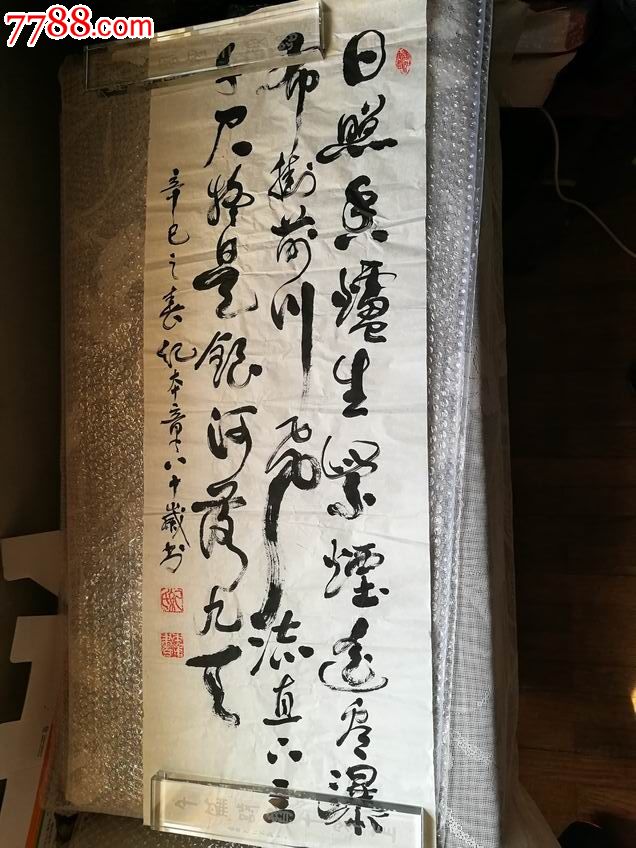 7788.com
日照香爐生紫煙遥看瀑
布掛前川飛流直下三
千尺疑是銀河落九天
辛巳之春纪本章八十歲书